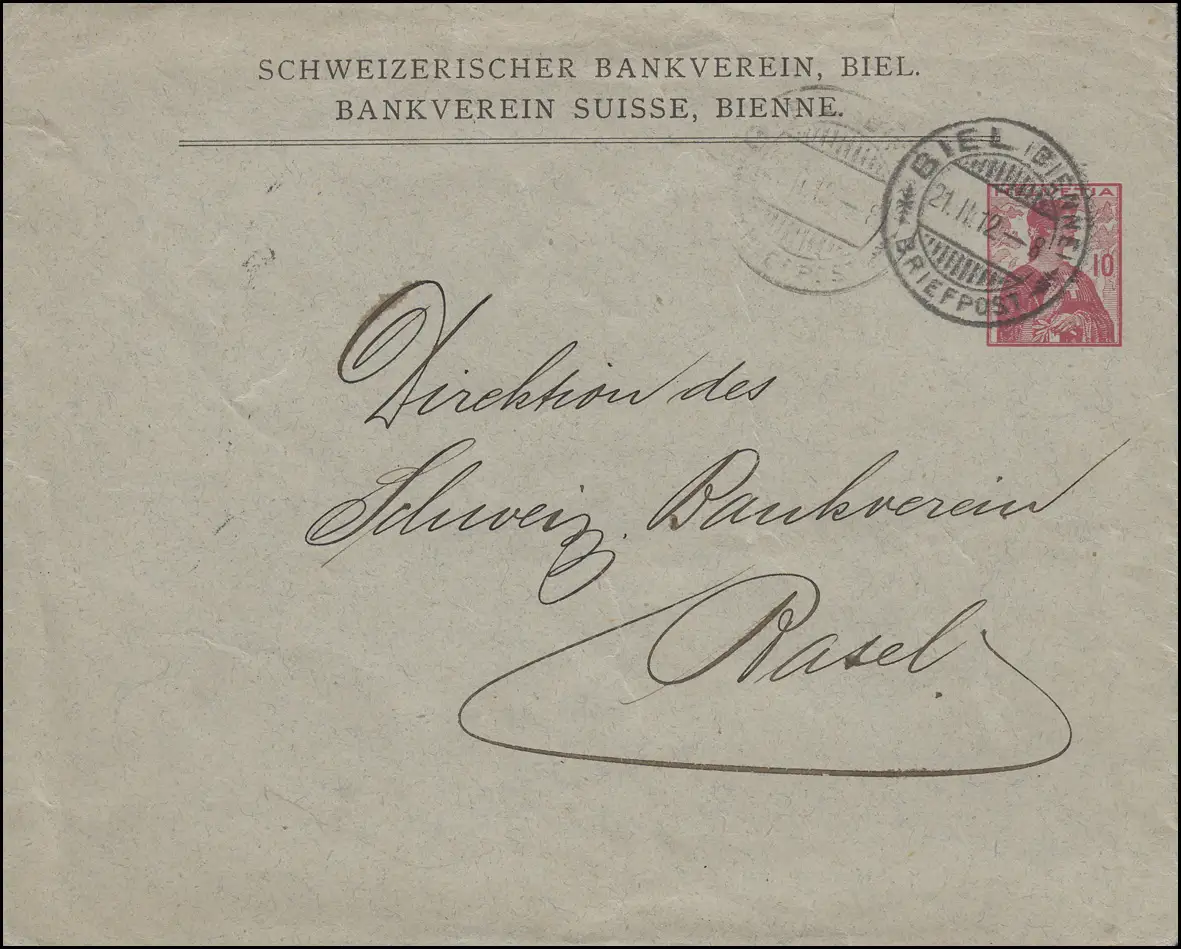 SCHWEIZERISCHER BANKVEREIN, BIEL.
BANKVEREIN SUISSE, BIENNE.
BIEL (BIENNE)
21.II.12.–8
BRIEFPOST
10
Direktion des
Schweiz. Bankverein
Basel.